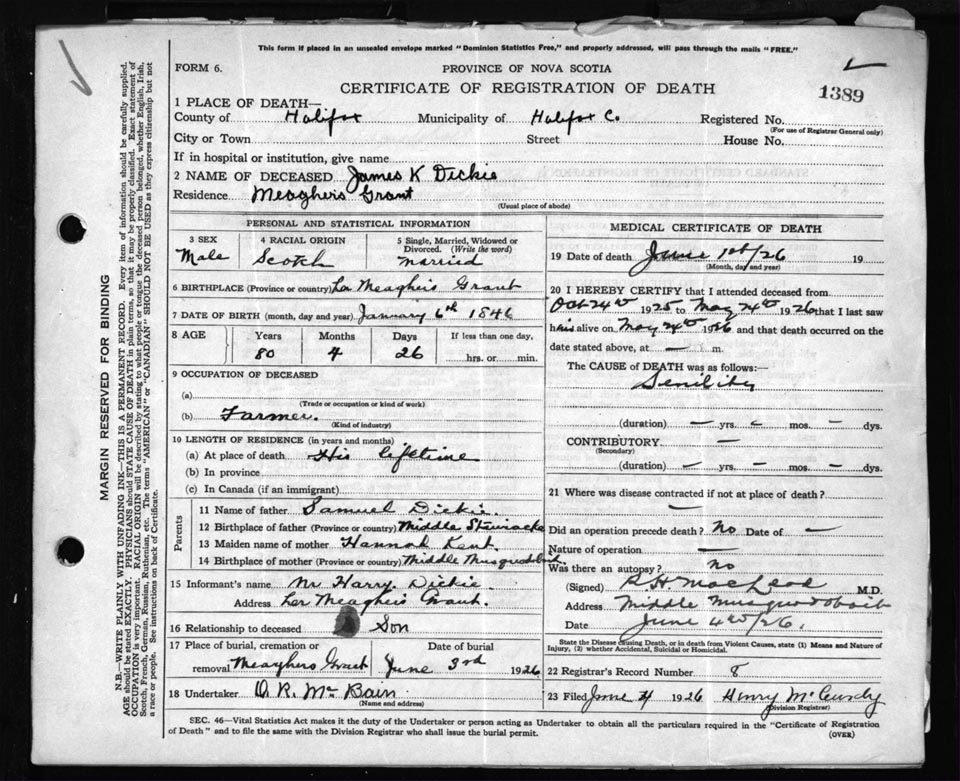 This form if placed in an unsealed envelope marked "Dominion Statistics Free," and properly addressed, will pass through the mails "FREE."
FORM 6.
PROVINCE OF NOVA SCOTIA
CERTIFICATE OF REGISTRATION OF DEATH
1389
1 PLACE OF DEATH—
County of Halifax Municipality of Halifax C. Registered No.
(For use of Registrar General only)
City or Town Street House No.
If in hospital or institution, give name
2 NAME OF DECEASED James K Dickie
Residence Meaghers Grant
(Usual place of abode)
PERSONAL AND STATISTICAL INFORMATION
3 SEX 4 RACIAL ORIGIN 5 Single, Married, Widowed or Divorced. (Write the word)
Male Scotch married
6 BIRTHPLACE (Province or country) Lor Meaghers Grant
7 DATE OF BIRTH (month, day and year) January 6th 1846
8 AGE Years Months Days If less than one day,
80 4 26 hrs. or min.
9 OCCUPATION OF DECEASED
(a)
(Trade or occupation or kind of work)
(b) Farmer.
(Kind of industry)
10 LENGTH OF RESIDENCE (in years and months)
(a) At place of death His lifetime
(b) In province
(c) In Canada (if an immigrant)
Parents
11 Name of father Samuel Dickie
12 Birthplace of father (Province or country) Middle Stewiacke
13 Maiden name of mother Hannah Kent.
14 Birthplace of mother (Province or country) Middle Musquodoboit
15 Informant's name Mr Harry. Dickie
Address Lor Meaghers Grant.
16 Relationship to deceased Son
17 Place of burial, cremation or removal Meaghers Grant
Date of burial June 3rd 1926
18 Undertaker O. R. Mc Bain
(Name and address)
MEDICAL CERTIFICATE OF DEATH
19 Date of death June 1st/26 19
(Month, day and year)
20 I HEREBY CERTIFY that I attended deceased from
Oct 24th 1925 to May 24th 1926 that I last saw
him alive on May 24th 1926 and that death occurred on the
date stated above, at — m.
The CAUSE of DEATH was as follows:—
Senility
(duration) — yrs. — mos. — dys.
CONTRIBUTORY —
(Secondary)
(duration) — yrs. — mos. — dys.
21 Where was disease contracted if not at place of death?
—
Did an operation precede death? No Date of —
Nature of operation —
Was there an autopsy? No
(Signed) R. H. MacLeod M.D.
Address Middle Musquodoboit
Date June 4th/26.
State the Disease Causing Death, or in death from Violent Causes, state (1) Means and Nature of Injury, (2) whether Accidental, Suicidal or Homicidal.
22 Registrar's Record Number 8
23 Filed June 4 1926 Henry McCurdy
(Division Registrar)
SEC. 46—Vital Statistics Act makes it the duty of the Undertaker or person acting as Undertaker to obtain all the particulars required in the "Certificate of Registration
of Death" and to file the same with the Division Registrar who shall issue the burial permit.
(OVER)
MARGIN RESERVED FOR BINDING
N.B.—WRITE PLAINLY WITH UNFADING INK—THIS IS A PERMANENT RECORD. Every item of information should be carefully supplied.
AGE should be stated EXACTLY. PHYSICIANS should STATE CAUSE OF DEATH in plain terms, so that it may be properly classified. Exact statement of
OCCUPATION is very important. RACIAL ORIGIN will be described by stating to what people or tongue the deceased person belonged, whether English, Irish,
Scotch, French, German, Russian, Ruthenian, etc. The terms "AMERICAN" or "CANADIAN" SHOULD NOT BE USED as they express citizenship but not
a race or people. See instructions on back of Certificate.